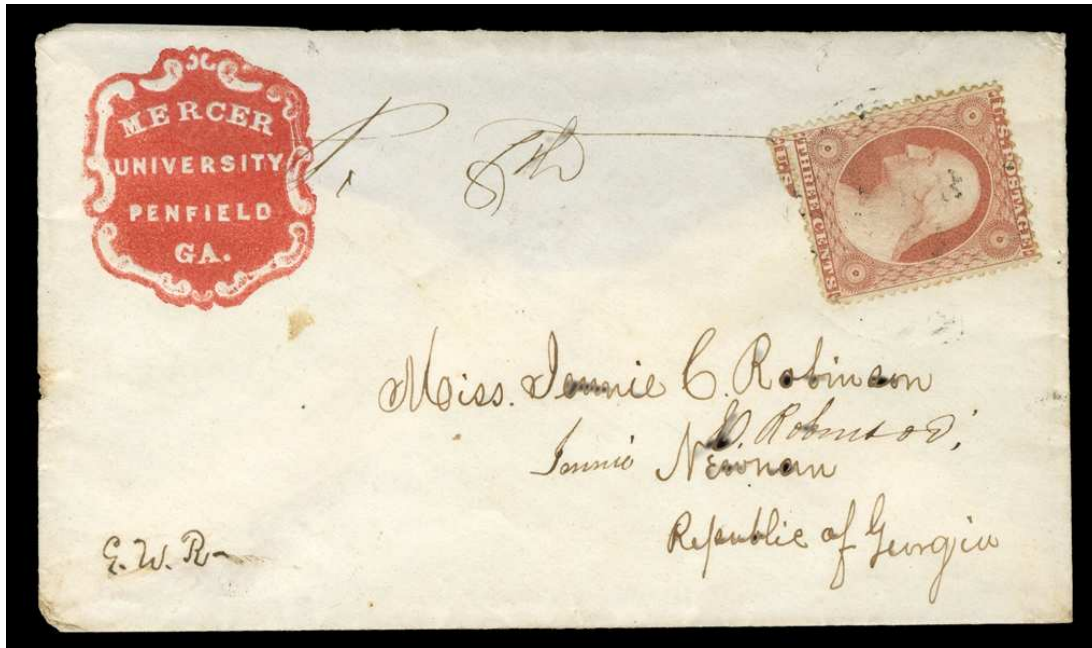 MERCER
UNIVERSITY
PENFIELD
GA.
8th
U.S. POSTAGE
THREE CENTS
Miss. Jennie C. Robinson
C. Robinson
Jennie Newnan
Republic of Georgia
E. W. R-